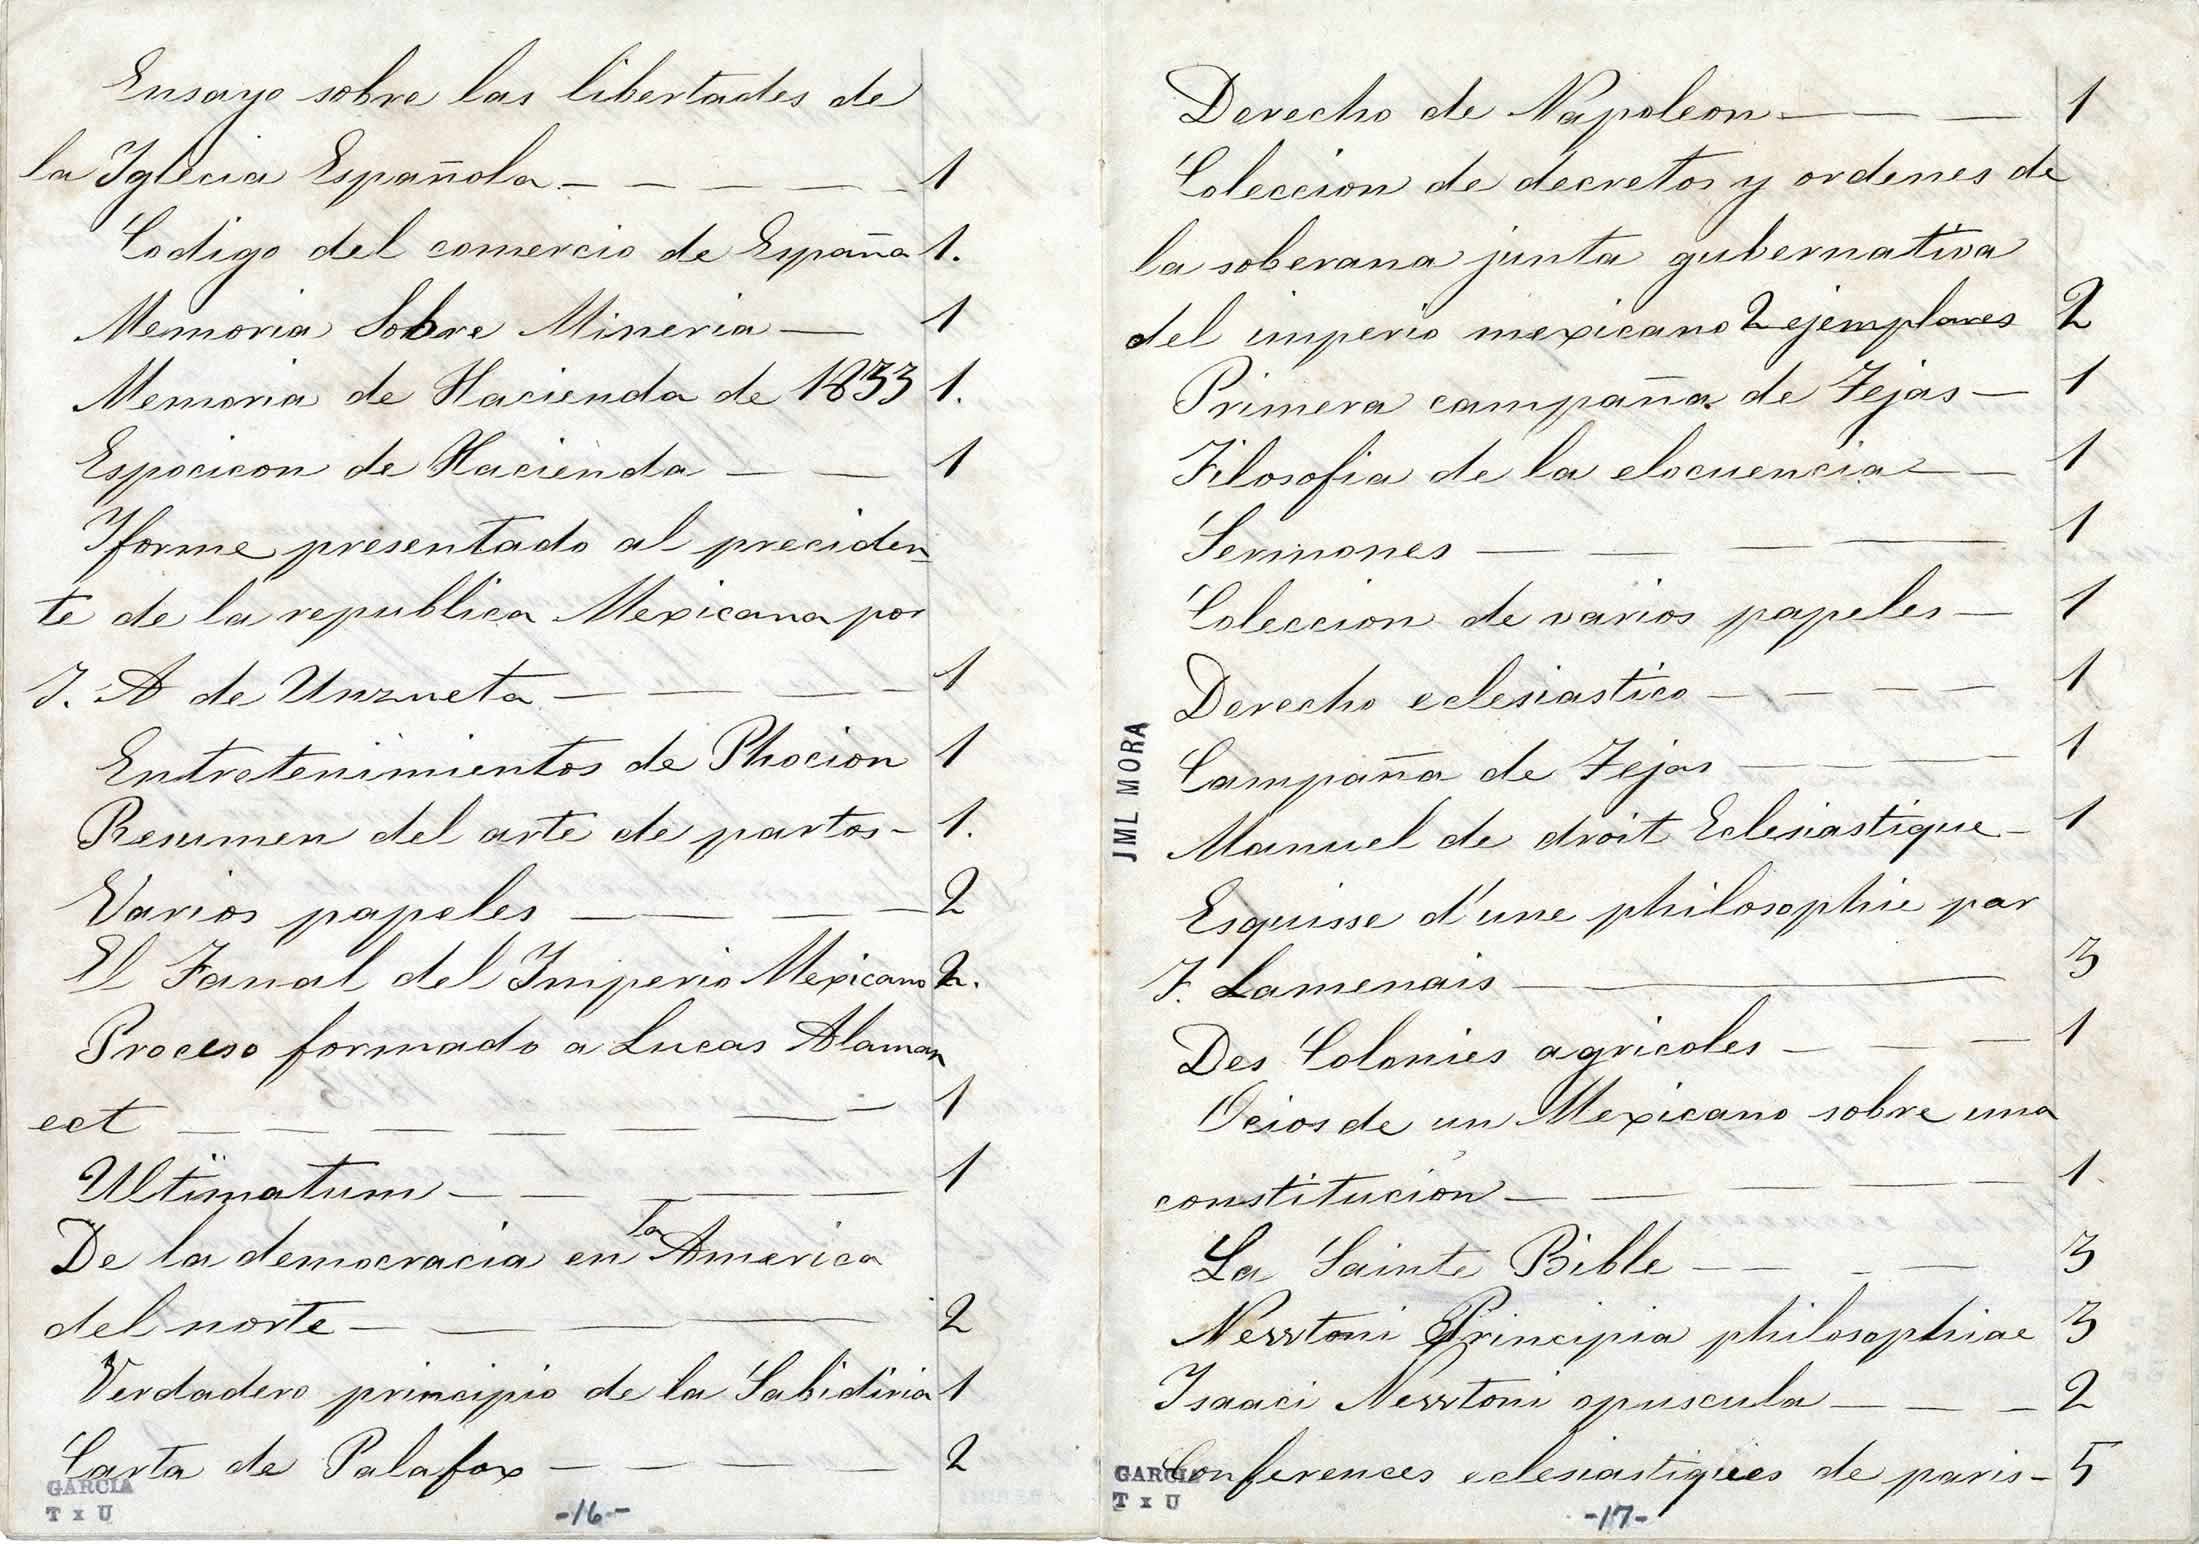 Ensayo sobre las libertades de
la Iglecia Española — — — — — 1
Codigo del comercio de España 1.
Memoria Sobre Mineria — 1
Memoria de Hacienda de 1833 1.
Espocicon de Hacienda — — 1
Iforme presentado al preciden
te de la republica Mexicana por
J. A de Unzueta — — — — 1
Entretenimientos de Phocion 1
Resumen del arte de partos - 1.
Varios papeles — — — — 2
El Fanal del Imperio Mexicano 2.
Proceso formado a Lucas Alaman
ect — — — — — — — 1
Ultimatum — — — — — 1
De la democracia en la America
del norte — — — — 2
Verdadero principio de la Sabidiria 1
Carta de Palafox — — — — 2
GARCIA
T x U
-16-
Derecho de Napoleon — — — 1
Coleccion de decretos y ordenes de
la soberana junta gubernativa
del imperio mexicano 2 ejemplares 2
Primera campaña de Tejas — 1
Filosofia de la elocuencia — — 1
Sermones — — — — 1
Coleccion de varios papeles — 1
Derecho eclesiastico — — — — 1
Campaña de Tejas — — — — 1
Manuel de droit Eclesiastique - 1
Esquisse d'une philosophie par
F. Lamenais — — 3
Des Colonies agricoles — — — 1
Ocios de un Mexicano sobre una
constitución — — — — — 1
La Sainte Bible — — — — 3
Newtoni Principia philosophiae 3
Isaaci Newtoni opuscula — — — 2
Conferences eclesiastiques de paris - 5
JML MORA
GARCIA
T x U
-17-